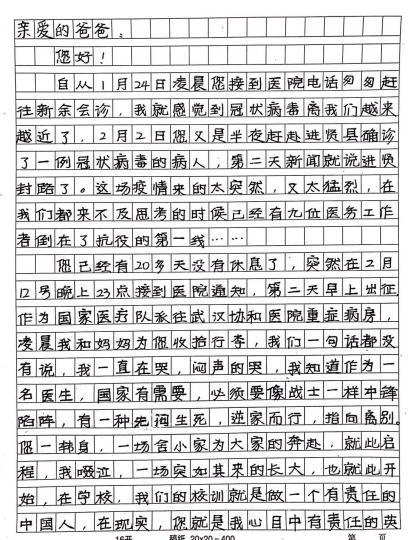 亲爱的爸爸：
您好！
自从1月24日凌晨您接到医院电话匆匆赶
往新余会诊，我就感觉到冠状病毒离我们越来
越近了，2月2日您又是半夜赶赴进贤县确诊
了一例冠状病毒的病人，第二天新闻就说进贤
封路了。这场疫情来的太突然，又太猛烈，在
我们都来不及思考的时候已经有九位医务工作
者倒在了抗疫的第一线……
您已经有20多天没有休息了，突然在2月
12号晚上23点接到医院通知，第二天早上出征，
作为国家医疗队派往武汉协和医院重症病房，
凌晨我和妈妈为您收拾行李，我们一句话都没
有说，我一直在哭，闷声的哭，我知道作为一
名医生，国家有需要，必须要像战士一样冲锋
陷阵，有一种先河生死，逆家而行，指向离别。
您一转身，一场舍小家为大家的奔赴，就此启
程，我啜泣，一场突如其来的长大，也就此开
始，在学校，我们的校训就是做一个有责任的
中国人，在现实，您就是我心目中有责任的英
16开 稿纸 20x20=400 第 页